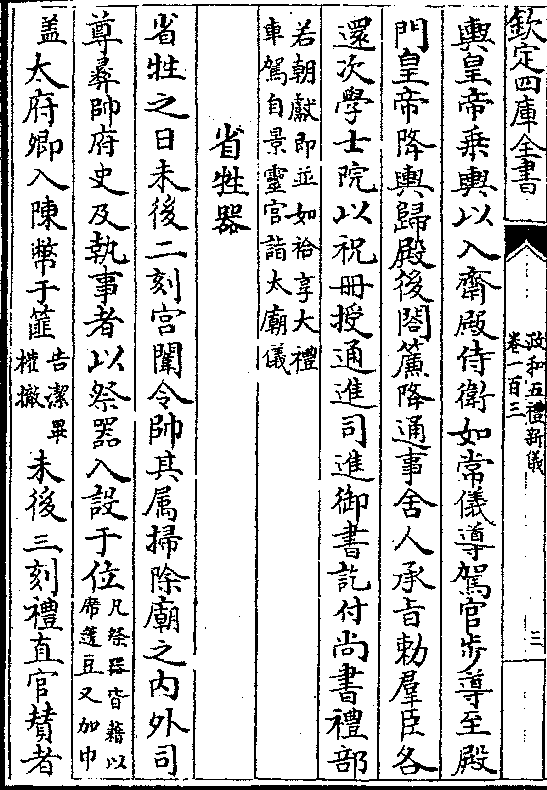 欽定四庫全書
政和五禮新儀
卷一百三
三
輿皇帝乗輿以入齋殿侍衛如常儀導駕官歩導至殿
門皇帝降輿歸殿後閤簾降通事舎人承旨勅羣臣各
還次學士院以祝冊授通進司進御書訖付尚書禮部
若朝獻即並如祫享大禮
車駕自景靈宫詣太廟儀
省牲器
省牲之日未後二刻宫闈令帥其属掃除廟之内外司
尊彛帥府史及執事者以祭器入設于位
凡祭器皆藉以
席籩豆又加巾
盖
太府卿入陳幣于篚
告潔畢
權撤
未後三刻禮直官賛者